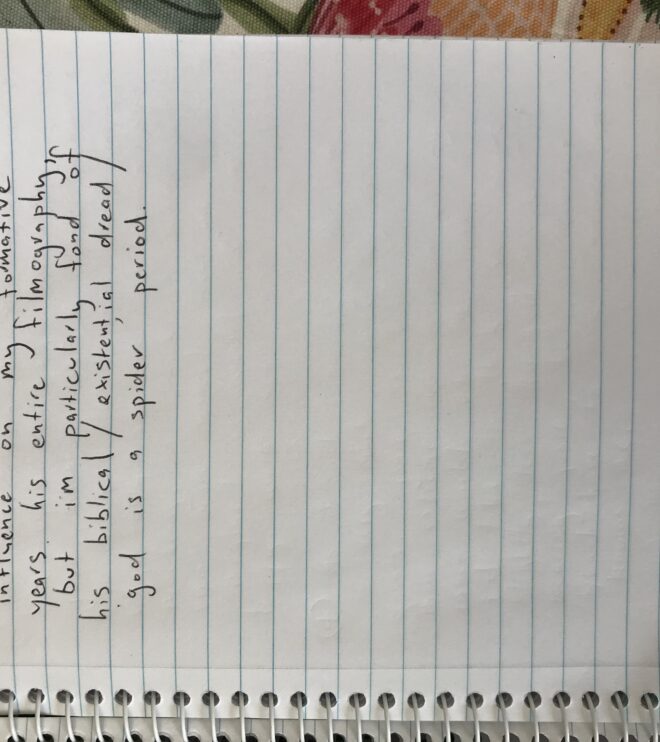 influence on my formative
years. his entire filmography,
but i'm particularly fond of
his biblical / existential dread /
god is a spider period.